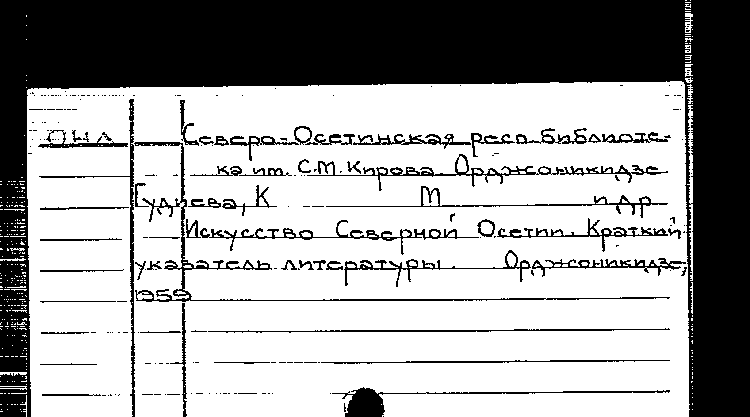 ОНЛ Северо-Осетинская респ. библиоте-
ка им. С.М. Кирова. Орджоникидзе
Гудиева, К М и др
Искусство Северной Осетии. Краткий
указатель литературы. Орджоникидзе,
1959